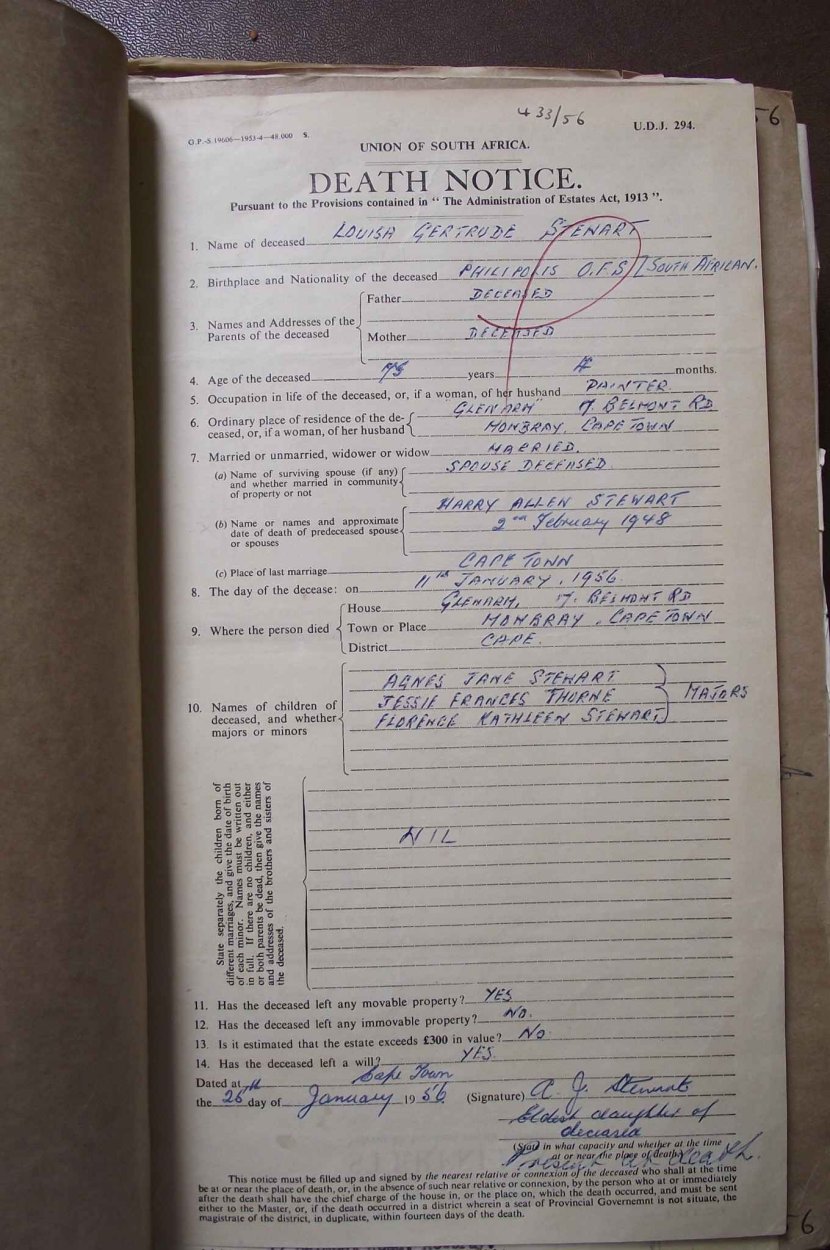 433/56
56
G.P.-S.19606—1953-4—48,000 S.
U.D.J. 294.
UNION OF SOUTH AFRICA.
DEATH NOTICE.
Pursuant to the Provisions contained in "The Administration of Estates Act, 1913".
1. Name of deceased LOUISA GERTRUDE STEWART
2. Birthplace and Nationality of the deceased PHILIPOLIS O.F.S. SOUTH AFRICAN.
3. Names and Addresses of the Parents of the deceased
Father DECEASED
Mother DECEASED
4. Age of the deceased 75 years 4 months.
5. Occupation in life of the deceased, or, if a woman, of her husband PAINTER
6. Ordinary place of residence of the de-
ceased, or, if a woman, of her husband
"GLENARM" 7. BELMONT RD
MOWBRAY, CAPE TOWN
7. Married or unmarried, widower or widow MARRIED.
(a) Name of surviving spouse (if any)
and whether married in community
of property or not
SPOUSE DECEASED.
(b) Name or names and approximate
date of death of predeceased spouse
or spouses
HARRY ALLEN STEWART
2nd February 1948
(c) Place of last marriage CAPE TOWN
8. The day of the decease: on 11th JANUARY, 1956
9. Where the person died
House GLENARM, 7. BELMONT RD
Town or Place MOWBRAY, CAPE TOWN
District CAPE.
10. Names of children of
deceased, and whether
majors or minors
AGNES JANE STEWART
JESSIE FRANCES THORNE
FLORENCE KATHLEEN STEWART
MAJORS
State separately the children born of
different marriages, and give the date of birth
of each minor. Names must be written out
in full. If there are no children, and either
or both parents be dead, then give the names
and addresses of the brothers and sisters of
the deceased.
NIL
11. Has the deceased left any movable property? YES
12. Has the deceased left any immovable property? NO.
13. Is it estimated that the estate exceeds £300 in value? NO
14. Has the deceased left a will? YES
Dated at Cape Town
the 26 day of January 1956 (Signature) A. J. Stewart
Eldest daughter of
deceased
(State in what capacity and whether at the time
at or near the place of death)
Present at death.
This notice must be filled up and signed by the nearest relative or connexion of the deceased who shall at the time
be at or near the place of death, or, in the absence of such near relative or connexion, by the person who at or immediately
after the death shall have the chief charge of the house in, or the place on, which the death occurred, and must be sent
either to the Master, or, if the death occurred in a district wherein a seat of Provincial Governemnt is not situate, the
magistrate of the district, in duplicate, within fourteen days of the death.
56